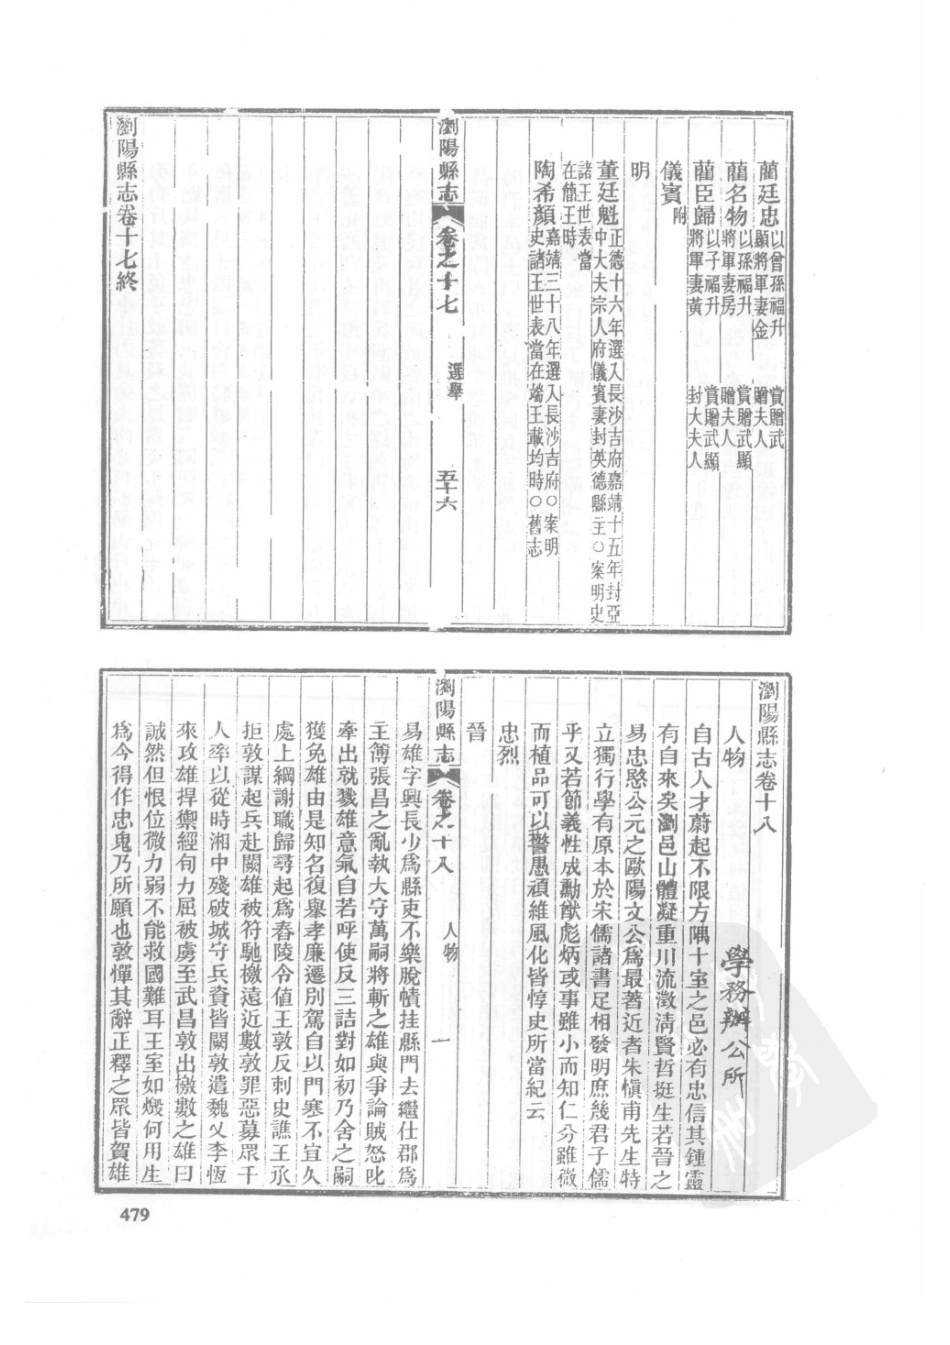 藺廷忠以曾孫福升賞贈武顯將軍妻金贈夫人
藺名物以孫福升賞贈武顯將軍妻房贈夫人
藺臣歸以子福升賞贈武顯將軍妻黃封大夫人
儀賓附
明
董廷魁正德十六年選入長沙吉府嘉靖十五年封亞中大夫宗人府儀賓妻封英德縣主○案明史諸王世表當在簡王時
陶希顏嘉靖三十八年選入長沙吉府○案明史諸王世表當在端王載均時○舊志
瀏陽縣志 卷之十七 選舉 五十六
瀏陽縣志卷十七終
瀏陽縣志卷十八
人物
學務辦公所
自古人才蔚起不限方隅十室之邑必有忠信其鍾靈
有自來矣瀏邑山體凝重川流澂清賢哲挺生若晉之
易忠愍公元之歐陽文公爲最著近者朱愼甫先生特
立獨行學有原本於宋儒諸書足相發明庶幾君子儒
乎又若節義性成勳猷彪炳或事雖小而知仁分雖微
而植品可以警愚頑維風化皆惇史所當紀云
忠烈
晉
易雄字興長少爲縣吏不樂脫幘挂縣門去繼仕郡爲
主簿張昌之亂執大守萬嗣將斬之雄與爭論賊怒叱
牽出就戮雄意氣自若呼使反三詰對如初乃舍之嗣
獲免雄由是知名復舉孝廉遷別駕自以門寒不宜久
處上綱謝職歸尋起爲舂陵令值王敦反刺史譙王氶
拒敦謀起兵赴闕雄被符馳檄遠近數敦罪惡募眾千
人率以從時湘中殘破城守兵資皆闕敦遣魏乂李恆
來攻雄捍禦經旬力屈被虜至武昌敦出檄數之雄曰
誠然但恨位微力弱不能救國難耳王室如燬何用生
爲今得作忠鬼乃所願也敦憚其辭正釋之眾皆賀雄
瀏陽縣志 卷之十八 人物 一
479